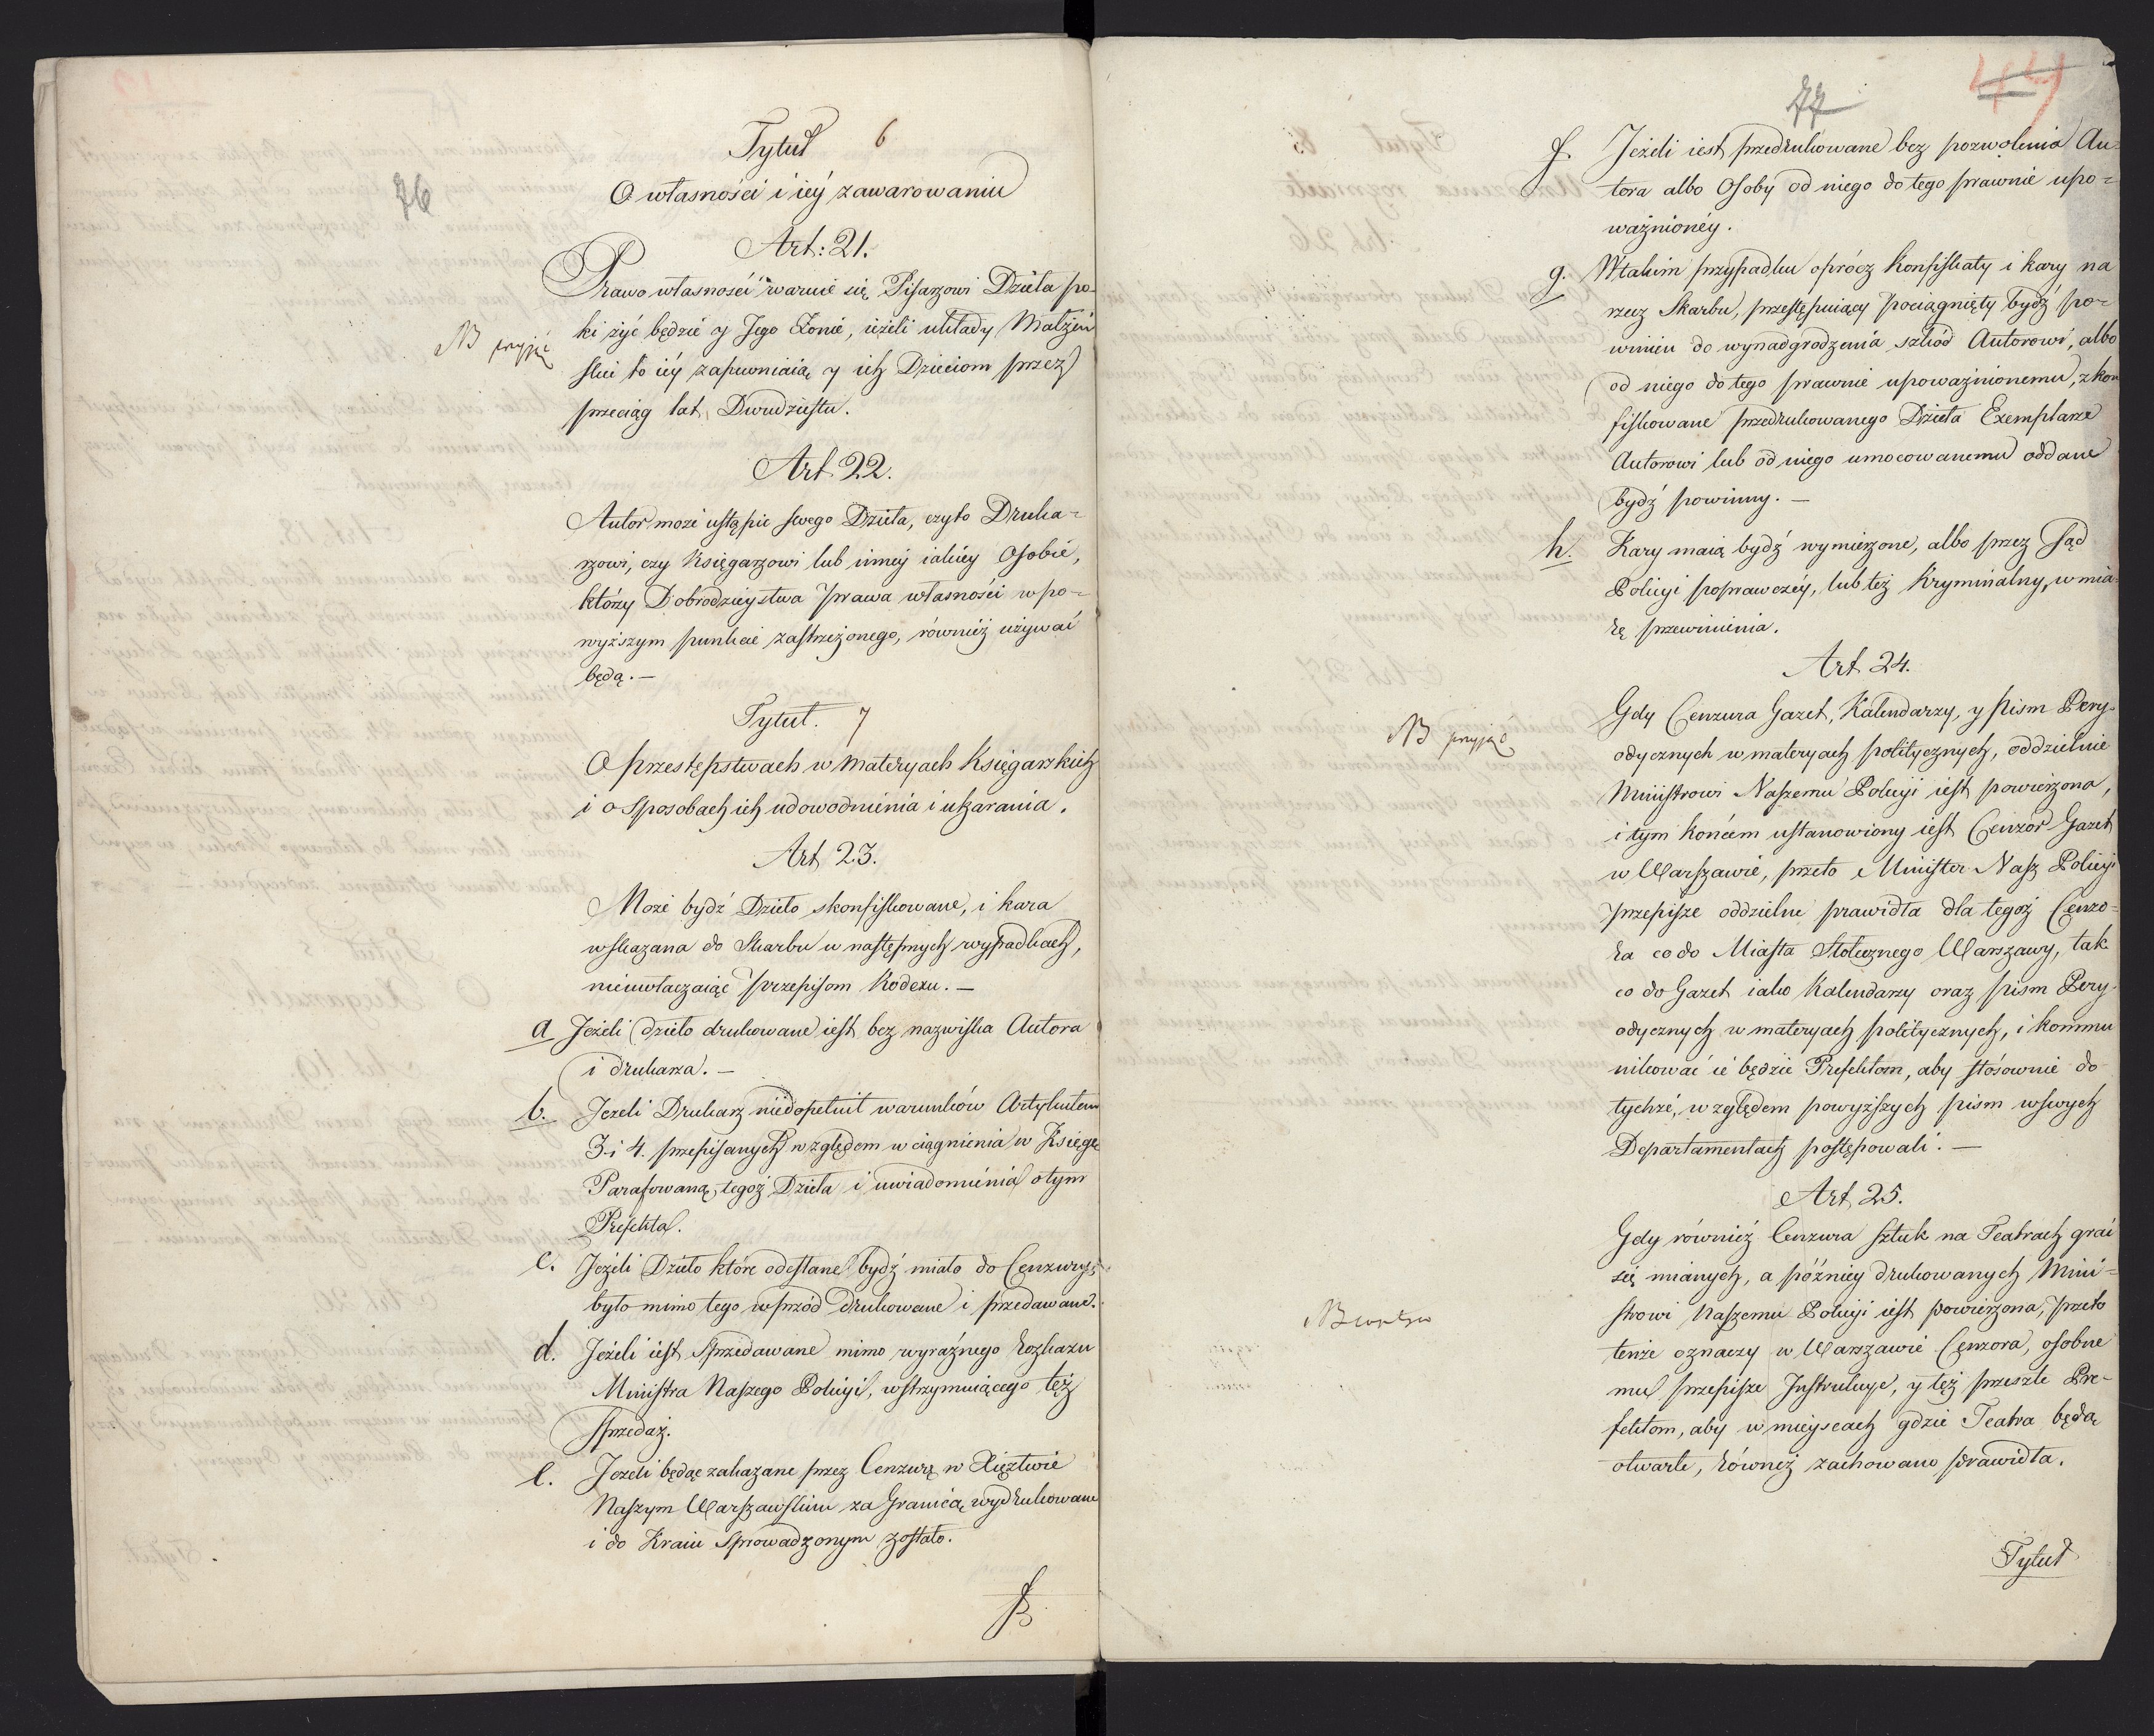 76
Tytuł 6
O własności i iéy zawarowaniu
Art: 21.
Prawo własności waruie się Pisarzowi Dzieła po-
ki żyć będzie y Jego Żonie, ieżeli układy Małżeń
NB przyjąć
skie to iéy zapewniaią y ich Dzieciom przez
przeciąg lat Dwudziestu.
Art. 22.
Autor może ustąpic swego Dzieła, czyto Druka=
rzowi, czy Księgarzowi lub inney iakiey Osobie,
którzy Dobrodzieystwa Prawa własności w po=
wyższym punkcie zastrzeżonego, również używać
będą. —
Tytuł. 7
O przestępstwach w materyach Księgarskich
i o Sposobach ich udowodnienia i ukarania.
Art 23.
Może bydź Dzieło skonfiskowane, i kara
wskazana do Skarbu w następnych wypadkach,
nieuwłaczaiąc Przepisom Kodexu. —
a Jeżeli dzieło drukowane iest bez nazwiska Autora
i drukarza. —
b. Jeżeli Drukarz niedopełnił warunków Artykułem
3. i 4. przepisanych względem wciągnienia w Księgę
Parafowaną, tegoż Dzieła i uwiadomienia o tym
Prefekta.
c. Jeżeli Dzieło które odesłane bydź miało do Cenzury,
było mimo tego wprzód drukowane i przedawane.
d. Jeżeli iest Sprzedawane mimo wyraźnego rozkazu
Ministra Naszego Policyi, wstrzymuiącego też
Sprzedaż.
e. Jeżeli będąc zakazane przez Cenzurę w Xięztwie
Naszym Warszawskim za Granicą wydrukowane
i do Kraiu Sprowadzonym zostało.
77
44
f. Jeżeli iest przedrukowane bez pozwolenia Au=
tora albo Osoby od niego do tego prawnie upo=
ważnionéy.
g. W takim przypadku oprócz konfiskaty i kary na
rzecz Skarbu, przestępuiący pociągnięty bydź po=
winien do wynadgrodzenia szkod Autorowi, albo
od niego do tego prawnie upoważnionemu, zkon
fiskowane przedrukowanego Dzieła Exemplarze
Autorowi lub od niego umocowanemu oddane
bydź powinny. —
h. Kary maią bydź wymierzone, albo przez Sąd
Policyi poprawczéy, lub też Kryminalny, w mia=
rę przewinienia.
Art 24.
Gdy Cenzura Gazet, Kalendarzy, y pism Pery-
NB przyjąć
odycznych w materyach politycznych, oddzielnie
Ministrowi Naszemu Policyi iest powierzona,
i tym końcem ustanowiony iest Cenzor Gazet
w Warszawie, przeto Minister Nasz Policyi
przepisze oddzielne prawidła dla tegoż Cenzo=
ra co do Miasta Stołecznego Warszawy, tak
co do Gazet iako Kalendarzy oraz pism Pery-
odycznych w materyach politycznych, i kommu
nikować ie będzie Prefektom, aby stósownie do
tychże, względem powyższych pism w swych
Departamentach postępowali. —
Art 25.
Gdy również Cenzura sztuk na Teatrach grać
się mianych, a późniey drukowanych Mini=
strowi Naszemu Policyi iest powierzona, przeto
NB
tenże oznaczy w Warszawie Cenzora, osobne
mu przepisze Instrukcye, y też prześzle Pre-
fektom, aby w mieyscach gdzie Teatra będą
otwarte, również zachowano prawidła.
Tytuł